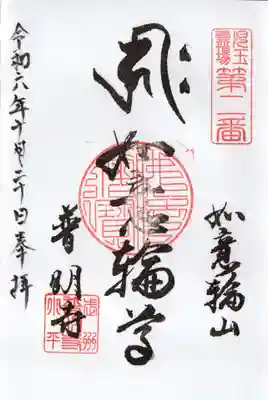 児玉
霊場
第二番
如意輪山
如意輪尊
普明寺
令和六年十月二十日奉拝